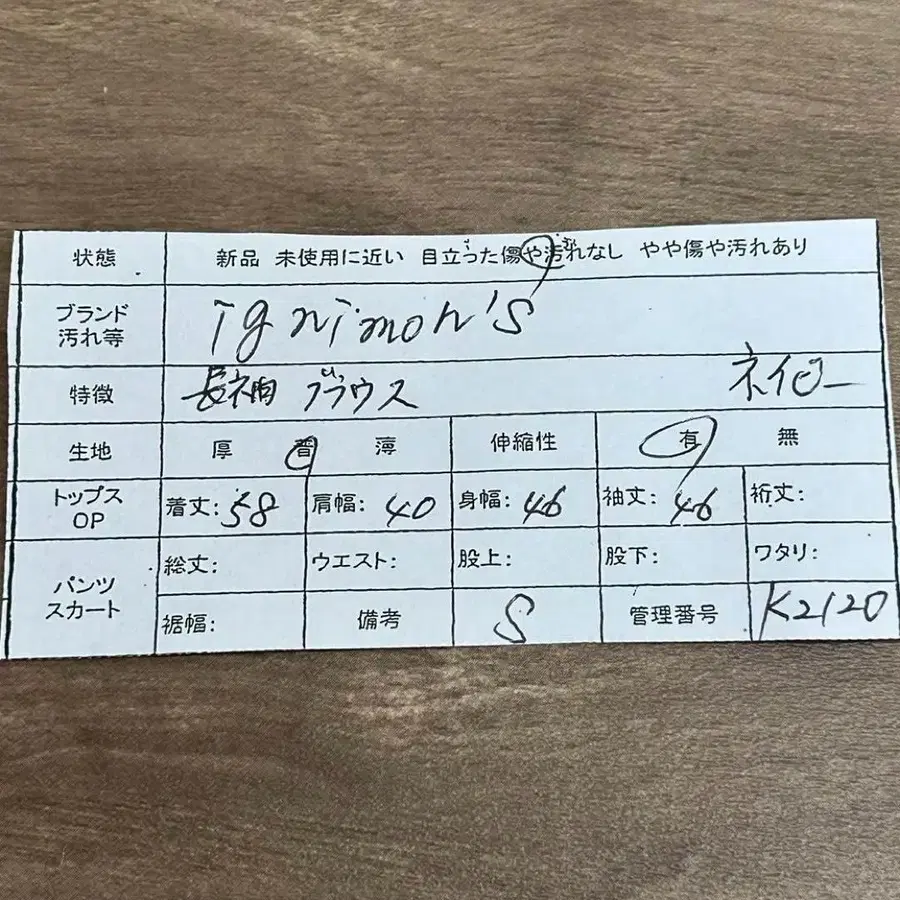 状態 新品 未使用に近い 目立った傷や汚れなし やや傷や汚れあり
ブランド
汚れ等
ignimon's
特徴 長袖 ブラウス ネイビー
生地 厚 普 薄 伸縮性 有 無
トップス
OP
着丈:58 肩幅:40 身幅:46 袖丈:46 裄丈:
パンツ
スカート
総丈: ウエスト: 股上: 股下: ワタリ:
裾幅: 備考 S 管理番号 K2120